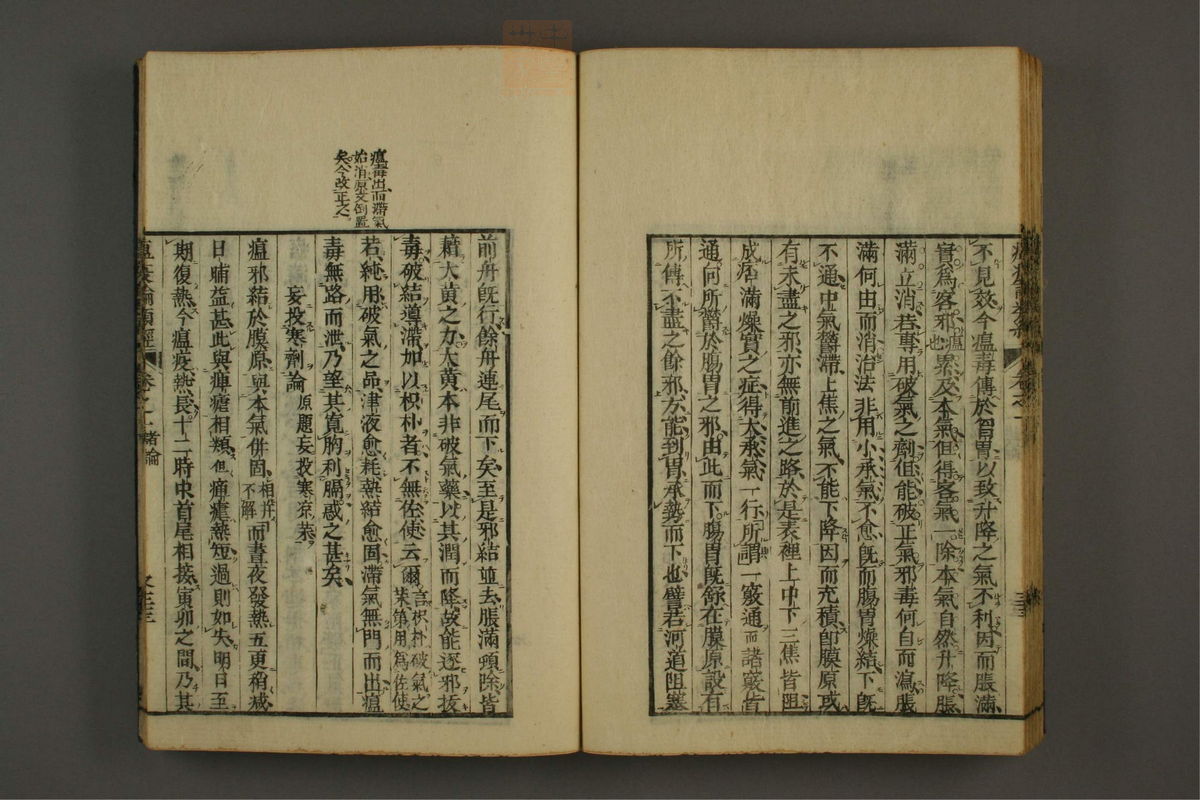 不見效今瘟毒傳於胷胃以致升降之氣不利因而脹滿
實爲客邪瘟也累及本氣但得客氣一除本氣自然升降脹
滿立消若專用破氣之劑但能破正氣邪毒何自而瀉脹
滿何由而消治法非用小承氣不愈旣而腸胃燥結下旣
不通中氣鬱滯上焦之氣不能下降因而充積卽膜原或
有未盡之邪亦無前進之路於是表裡上中下三焦皆阻
成痞滿燥實之症得大承氣一行所謂一竅通而諸竅皆
通何所鬱於腸胃之邪由此而下腸胃旣舒在膜原設有
所傳不盡之餘邪方能到胃承勢而下也譬若河道阻塞
前舟旣行餘舟連尾而下矣至是邪結並去脹滿頓除皆
藉大黃之力大黃本非破氣藥以其潤而降故能逐邪拔
毒破結導滯加以枳朴者不無佐使云爾言枳朴破氣之
藥第用爲佐使
若純用破氣之品津液愈耗熱結愈固滯氣無門而出瘟
毒無路而泄乃望其寬胸利膈惑之甚矣
妄投寒劑論原題妄投寒凉藥
瘟邪結於膜原與本氣併固相并
不解而晝夜發熱五更稍減
日晡益甚此與癉瘧相類但癉瘧熱短過則如失明日至
期復熱今瘟疫熱長十二時中首尾相接寅卯之間乃其
瘟毒出而滯氣
始消原文倒置
矣今改正之
瘟疫論類經 卷之一 諸論